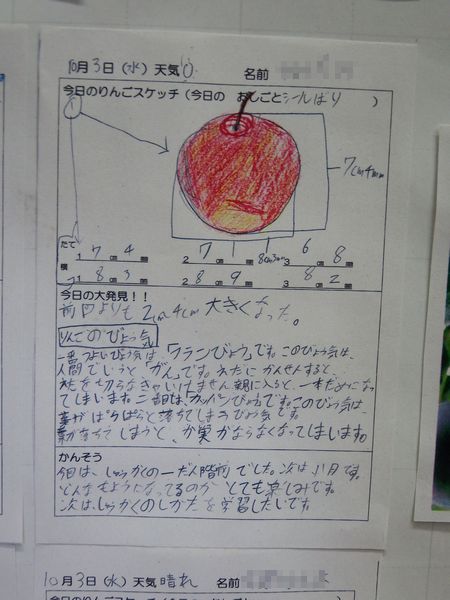 10月3日(水)天気 名前
今日のりんごスケッチ(今日の おしごとシールはり )
7cm4mm
8cm3mm
たて 1 7 cm 4 mm 2 7 cm mm 3 6 cm 8 mm
横 1 8 cm 3 mm 2 8 cm 9 mm 3 8 cm 2 mm
今日の大発見!!
前回よりも2cm4cm大きくなった。
りんごのびょう気
一番つよいびょう気は、「フランびょう」です。このびょう気は、
人間でいうと「がん」です。えだにかんせんすると、
えだを切らなきゃいけません。幹に入ると、一本だめになっ
てしまいます。二番目は、です。このびょう気は、
葉がぱらぱらと落ちてしまうびょう気です。
葉がおちてしまうと、か実がならなくなってしまいます。
かんそう
今日は、しゅうかくの一だん階前でした。次は、11月です。
どんなもようになってるのか、とても楽しみです。
次は、しゅうかくのしかたを学習したいです
10月3日(水)天気 晴れ 名前